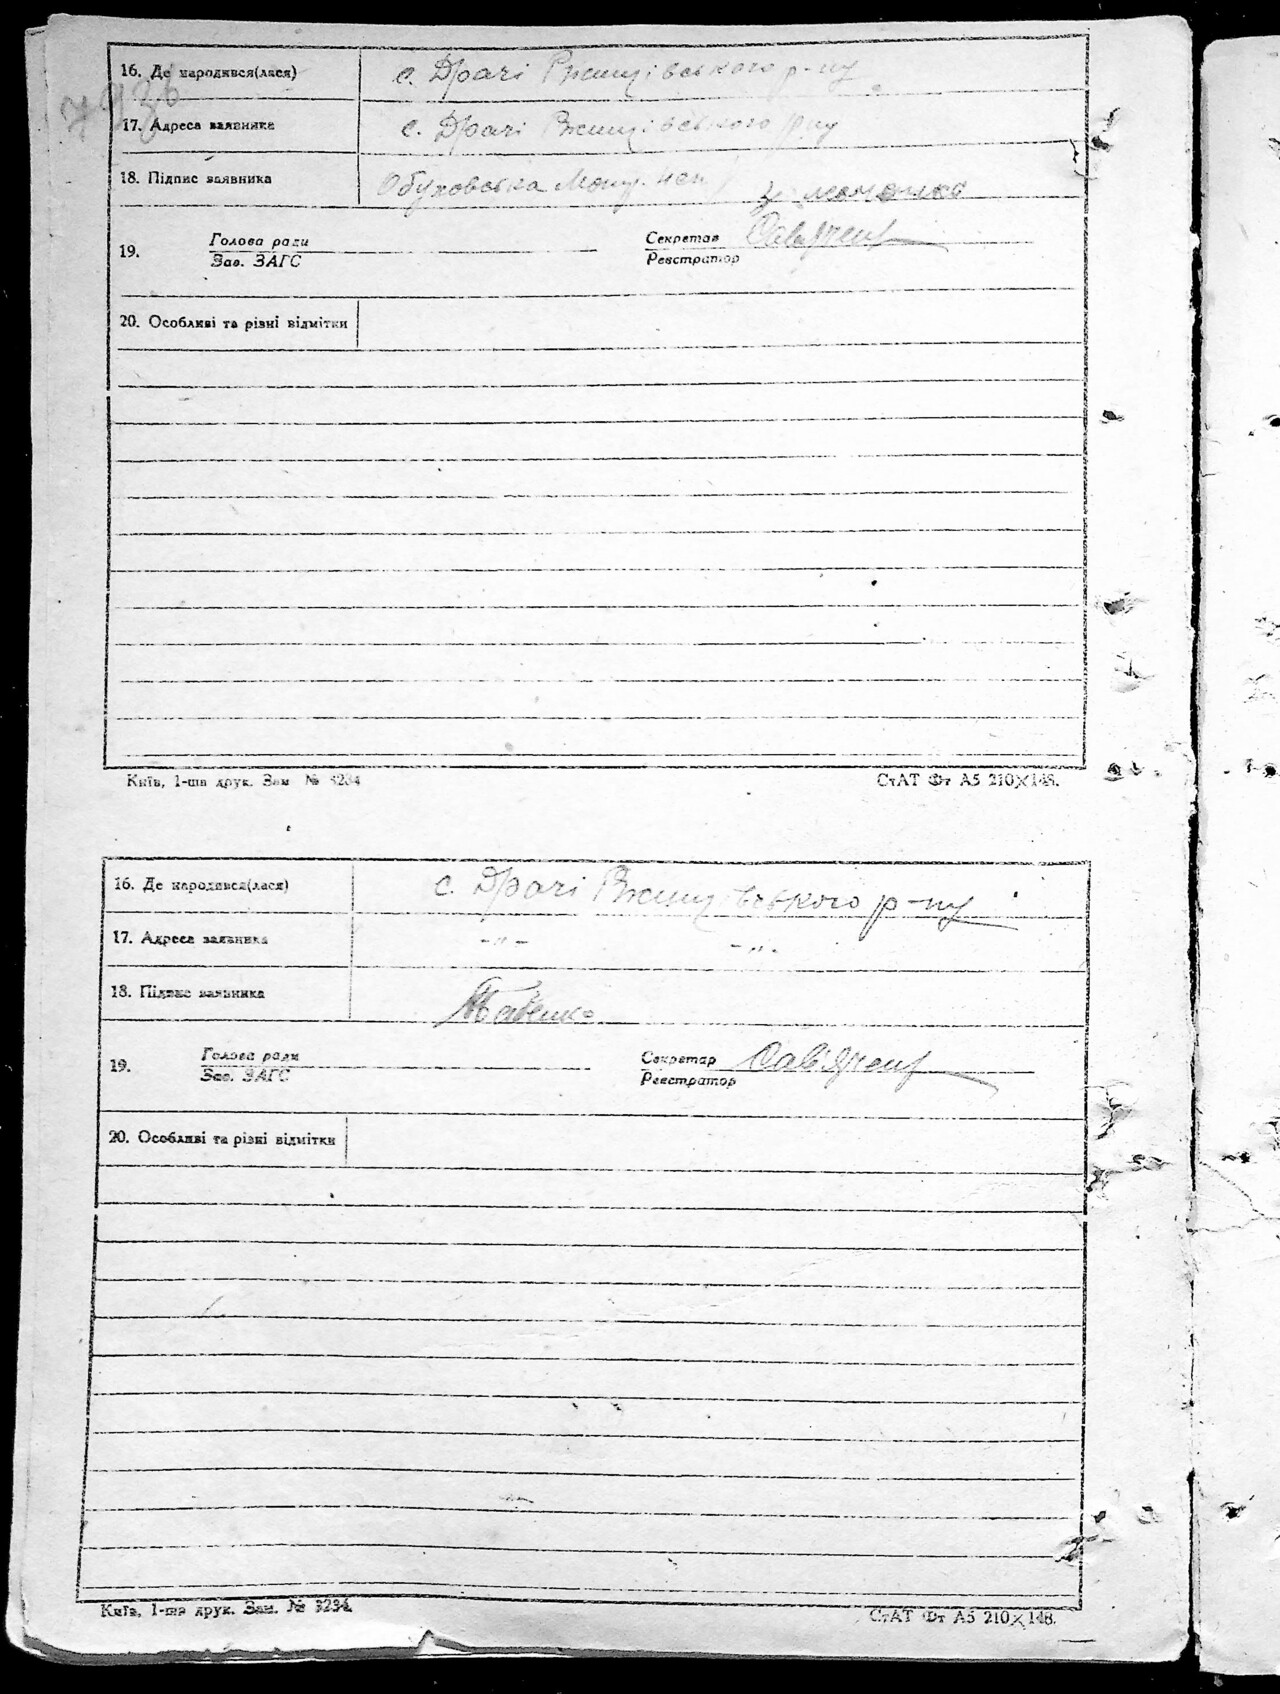 16. Де народився(лася) с. Драчі Ржищівського р-ну
17. Адреса заявника с. Драчі Ржищівського р-ну
18. Підпис заявника Обуховська
19. Голова ради Секретар
Зав. ЗАГС Реєстратор
20. Особливі та різні відмітки
Київ, 1-ша друк. Зам № 3234
СтАТ Фт А5 210×148.
16. Де народився(лася) с. Драчі Ржищівського р-ну
17. Адреса заявника -„- -„-
18. Підпис заявника
19. Голова ради Секретар
Зав. ЗАГС Реєстратор
20. Особливі та різні відмітки
Київ, 1-ша друк. Зам. № 3234.
СтАТ Фт А5 210×148.